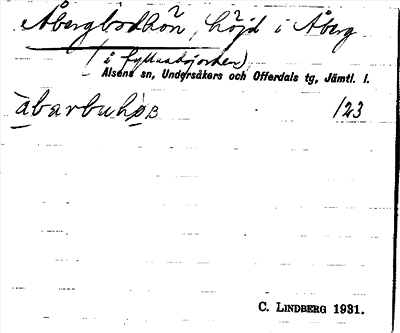 Åbergbodhön, höjd i Åberg
(å Hyllsahöjorden)
Alsens sn, Undersåkers och Offerdals tg, Jämtl. l.
àbarbuhøn 123
C. LINDBERG 1931.